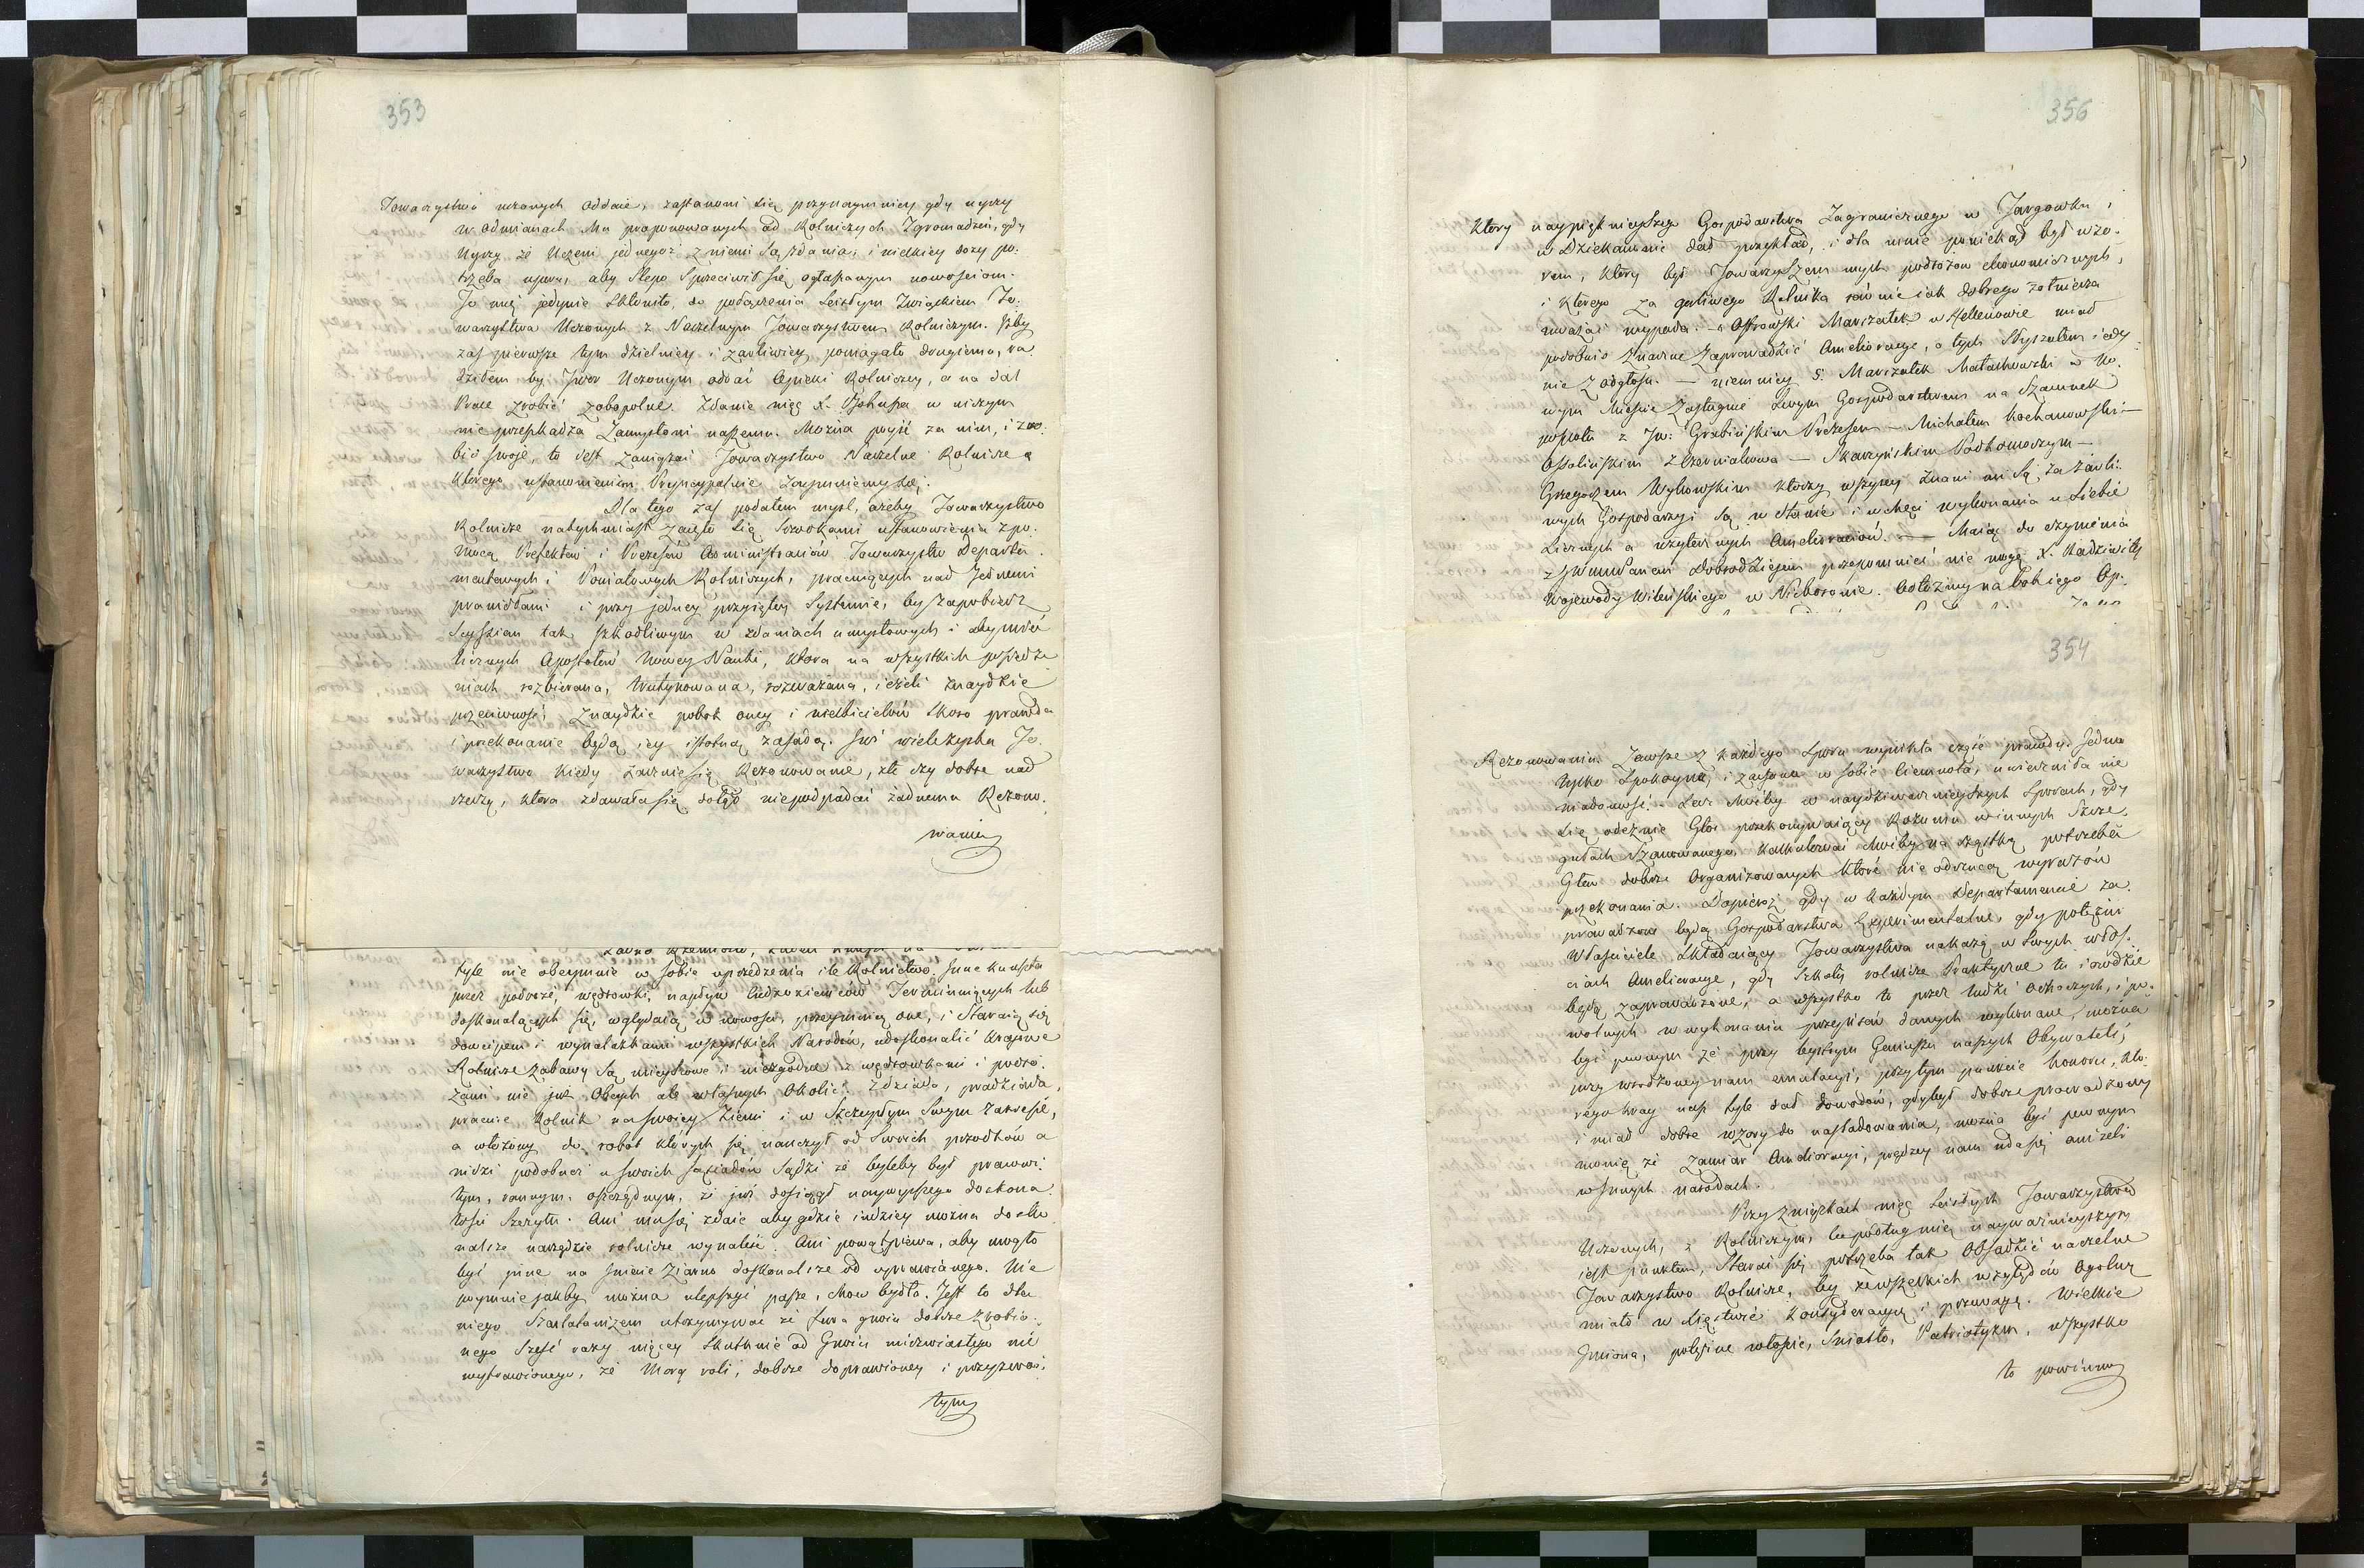 353
Towarzystwo uczonych oddaie, zastanowi się przynaymniey gdy uyrzy
w odmianach Mu proponowanych od Rolniczych Zgromadzeń, gdy
Uyrzy że Uczeni jednegoż z niemi są zdania, i wielkiey dozy po-
trzeba uporu, aby Slepo Sprzeciwił się ogłaszanym nowosciom.
To mię jedynie Skłoniło, do połączenia Scisłym Związkiem To-
warzystwa Uczonych z Naczelnym Towarzystwem Rolniczym. Iżby
zaś pierwsze tym dzielniey i żarliwiey pomagało drugiemu, ra-
dziłem by Twor Uczonym oddać Opieki Rolniczey, a na dal
Prace zrobić zobopolne. Zdanie więc X. w niczym
nie przeszkadza Zamysłowi naszemu. Można poyść za nim, i zro-
bić swoje, to iest zawiązać Towarzystwo Naczelne Rolnicze
którego ustanowieniem Pryncypalnie zaymuiemy się.
Dla tego zaś podałem mysl, ażeby Towarzystwo
Rolnicze natychmiast zaięło się Srzodkami ustanowienia z po-
mocą Prefektow i Prezesów Administracÿinów Towarzystw Departa-
mentowych i Powiatowych Rolniczych, pracuiących nad Jednemi
prawidłami i przy jedney przyiętey Systemie, by zapobiedz
Scyssiom tak szkodliwym w zdaniach umysłowych i aby mieć
licznych Apostołów Nowey Nauki, ktora na wszystkich posiedze-
niach rozbierana, Wentylowana, rozważana, ieżeli znaydzie
przeciwność, znaydzie pobok oney i wielbicielów skoro prawda
i przekonanie będą iey istotną zasadą. Już wiele zyska To-
warzystwo kiedy Zacznie się Rezonowanie, źle czy dobrze nad
rzeczą, ktora zdawała się dotąd niepodpadać żadnemu Rezono-
waniu
tyle nie obeymuie w sobie uprzedzenia ile Rolnictwo. Inne kunszta
przez podróże, wędrowki, napływ Cudzoziemców Terminuiących lub
doskonalących się, wglądaią w nowości, przeymuią one, i Staraią się
dowcipem i wynalazkami wszystkich Narodów, udoskonalić kraiowe
Rolnicze zabawy są mieyscowe i niezgodne z wędrowkami i podro-
żami nie już Obcych ale własnych Okolic. Z dziada, pradziada,
pracuie Rolnik na swoiey Ziemi i w Szczupłym Swym Zakresie,
a włożony do robot których się nauczył od Swoich przodków a
widzi podobneż u swoich sąsiadów Sądzi że byleby był pracowi-
tym, rannym, oszczędnym, że już dosiągł naywyższego doskona-
łości Szczytu. Ani mu się zdaie aby gdzie indziey można dosko-
nalsze narzędzie rolnicze wynaleść. Ani powątpiewa, aby mogło
być inne na Jmie Ziarno doskonalsze od uprawianego. Nie
poymuie jakby można ulepszyć pasze, chow bydła. Jest to dla
niego Szarlatanizm utrzymywać że fura gnoiu dobrze zrobio-
nego Sześć razy więcey Skutkuie od Gnoiu mierzwiastego nie
wytrawionego, że Morg roli, dobrze doprawioney i przyzwoi-
tym
356
Ktory naypięknieyszego Gospodarstwa Zagranicznego w Targowku i
w Dziekanowie dał przykład, i dla mnie poniekąd był wzo-
rem, ktory był Towarzyszem mych podróżow ekonomicznych,
i którego za gorliwego Rolnika rownie iak dobrego zołnierza
uważać wypada. – Ostrowski Marszałek w Hellenowie miał
podobnież znaczne zaprowadzić Amelioracye, o tych Słyszałem iedy-
nie z odgłosu. – niemniey S. Marszałek Małachowski w No-
wym Mieście Zasługuie Swym Gospodarstwem na Szacunek
pospołu z Jw. Grabińskim Prezesem – Michałem Kochanowskim –
Ossolińskim z Czerniakowa – Skarzyńskim Podkomorzym –
Grzegorzem Wykowskim ktorzy wszyscy znani mi są za żarli-
wych Gospodarzy i są w stanie i w chęci wykonania u Siebie
licznych a użytecznych Amelioracjów. – Maiąc do czynienia
z JWM Panem Dobrodziejem przepomnieć nie mogę X. Radziwiłły
Wojewody Wileńskiego w Nieborowie. Odłożmy na bok iego Op-
354
Rezonowaniu. Zawsze z każdego Sporu wynikła część prawdy. Jedna
tylko Spokoyna, i zaufana w sobie Ciemnota, uwieczniła nie
wiadomość. Lecz choćby w naydziwacznieyszych Sporach, gdy
się odezwie Głos przekonywaiący Rozumu w innych Szcze-
gułach Szanowanego, kalkulować choćby na cząstkę potrzeba
Głow dobrze Organizowanych które nie odrzucą wyrazów
przekonania. Dopieroż gdy w każdym Departamencie za-
prowadzone będą Gospodarstwa Experimentalne, gdy potężni
Właściciele składaiący Towarzystwa nakażą w Swych włos-
ciach Amelioracye, gdy Szkoły rolnicze Praktyczne tu i owdzie
będą zaprowadzone, a wszystko to przez ludzi ochoczych, i po-
wolnych w wykonaniu przepisów danych wykonane, można
być pewnym że przy bystrym Geniuszu naszych Obywateli,
przy wrodzoney nam emulacyi, przy tym punkcie honoru, któ-
rego kray nasz tyle dał dowodów, gdyby był dobrze prowadzony
i miał dobre wzory do nasladowania, można być pewnym
mowię że zamiar Amelioracyi, prędzey nam uda się aniżeli
w Innych narodach.
Przy związkach więc Scisłych Towarzystwa
Uczonych, z Rolniczym, co podług mię nayważnieyszym
iest punktem, Starać się potrzeba tak Obsadzić naczelne
Towarzystwo Rolnicze, by ze wszelkich względów Ogolną
miało w Lięstwie Konsyderacyą i przewagę. Wielkie
Jmiona, potężne włoście, Swiatło, Patriotyzm, wszystko
to powinno